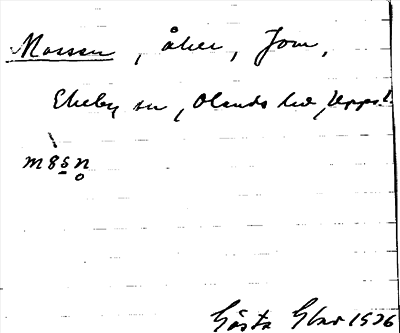 Mossen, åker, Jom,
Ekeby sn, Olands hd, Upps. l.
m8sn
Gösta 1936